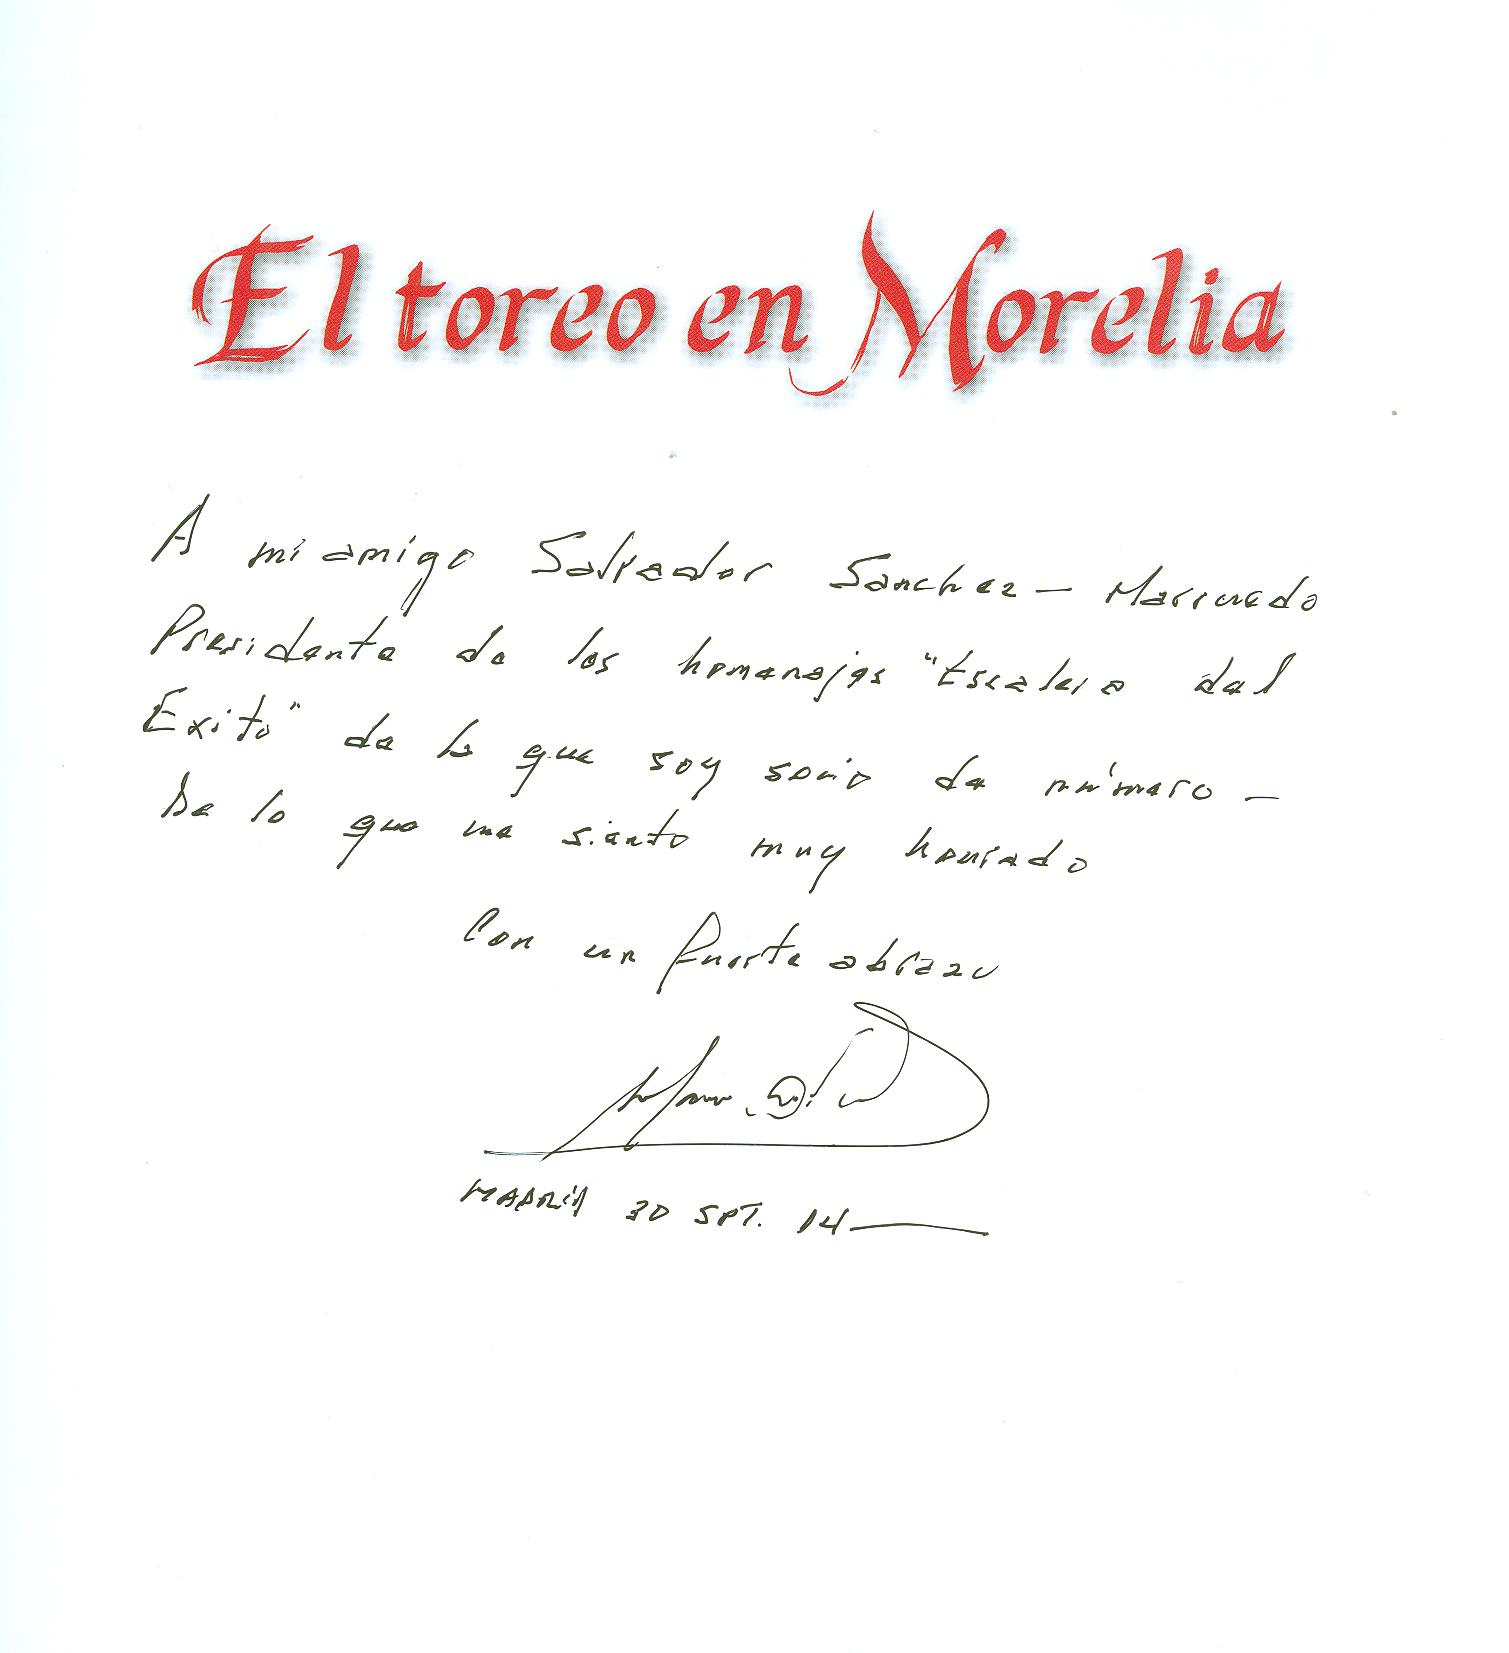 El toreo en Morelia
A mi amigo Salvador Sanchez - Marruedo
Presidente de los homenajes "Escalera del
Exito" de la que soy socio de número -
De lo que me siento muy honrado
Con un fuerte abrazo
MADRId 30 SPT. 14